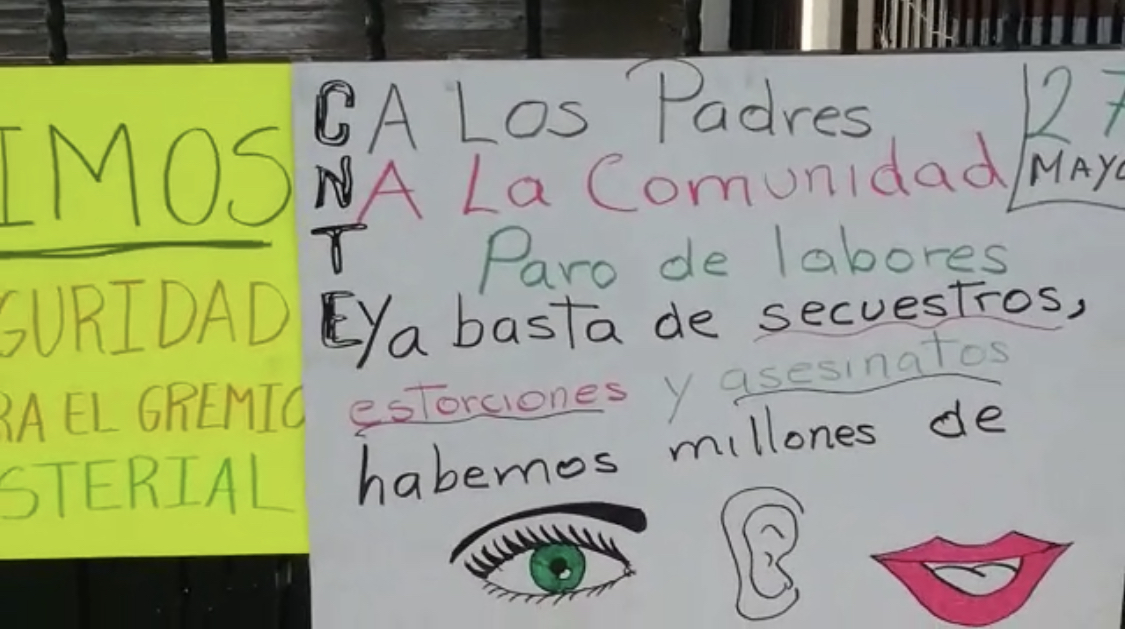 IMOS
GURIDAD
RA EL GREMIO
STERIAL
CNTE
A Los Padres
A La Comunidad
27
MAYO
Paro de labores
Ya basta de secuestros,
estorciones y asesinatos
habemos millones de